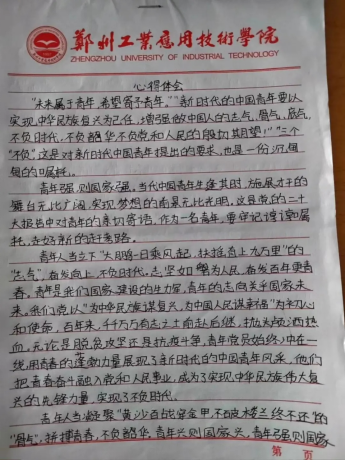 鄭州工業應用技術學院
ZHENGZHOU UNIVERSITY OF INDUSTRIAL TECHNOLOGY
心得体会
“未来属于青年,希望寄予青年。”“新时代的中国青年要以
实现中华民族复兴为己任,增强做中国人的志气、骨气、底气,
不负时代,不负韶华,不负党和人民的殷切期望!”“三个
“不负”,这是对新时代中国青年提出的要求,也是一份沉甸
甸的嘱托。
青年强则国家强。当代中国青年生逢其时,施展才干的
舞台无比广阔,实现梦想的前景无比光明。这是党的二十
大报告中对青年的亲切寄语,作为一名青年,要牢记嘱
托,走好新的赶考路。
青年人当立下“大鹏一日乘风起,扶摇直上九万里”的
“志气”,奋发向上,不负时代。志坚如为人,奋发百年更青
春。青年是我们国家建设的生力军,青年的志向关乎国家未
来。我们党以“为中华民族谋复兴,为中国人民谋幸福”为初心
和使命,百年来,千千万万有志之士前赴后继,抛头颅洒热
血,无论是脱贫攻坚还是抗疫斗争,青年党员始终冲在一
线,用青春的蓬勃力量展现了新时代的中国青年风采,他们
把青春奋斗融入党和人民事业,成为了实现中华民族伟大复
兴的先锋力量,实现了不负时代。
青年人当凝聚“黄沙百战穿金甲,不破楼兰终不还”的
“骨气”,拼搏青春,不负韶华。青年兴则国家兴,青年强则国家
第 页